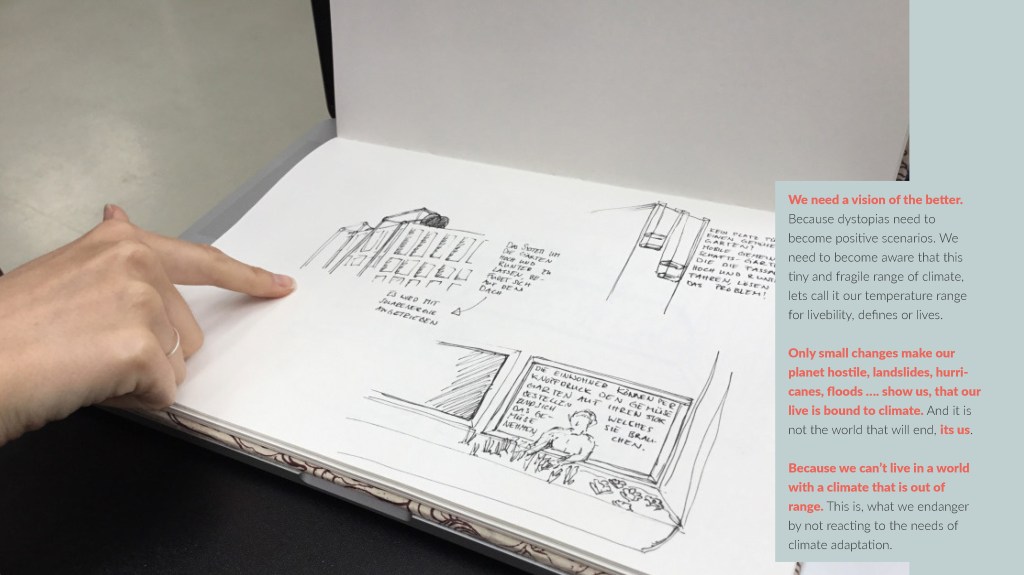 DAS SYSTEM UM
DIE GÄRTEN
HOCH UND
RUNTER ZU
LASSEN BE-
FINDET SICH
AUF DEM
DACH
ES WIRD MIT
SOLARENERGIE
ANGETRIEBEN
KEIN PLATZ FÜ
EINEN
GARTEN?
MOBILE GEMEIN
SCHAFTS-GÄRT
DIE DIE FASSA
HOCH UND RUN
FAHREN, LÖSEN
DAS PROBLEM!
DIE EINWOHNER KÖNNEN PER
KNOPFDRUCK DEN GEMÜSE
GARTEN AUF IHREN STOCK
BESTELLEN
UND SICH WELCHES
DAS GE- SIE BRAU-
MÜSE CHEN.
NEHMEN
We need a vision of the better.
Because dystopias need to
become positive scenarios. We
need to become aware that this
tiny and fragile range of climate,
lets call it our temperature range
for livebility, defines or lives.
Only small changes make our
planet hostile, landslides, hurri-
canes, floods .... show us, that our
live is bound to climate. And it is
not the world that will end, its us.
Because we can't live in a world
with a climate that is out of
range. This is, what we endanger
by not reacting to the needs of
climate adaptation.